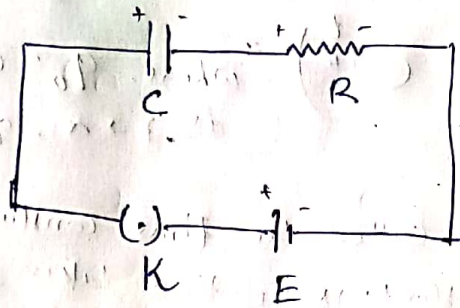 + - + -
C R
+ -
K E